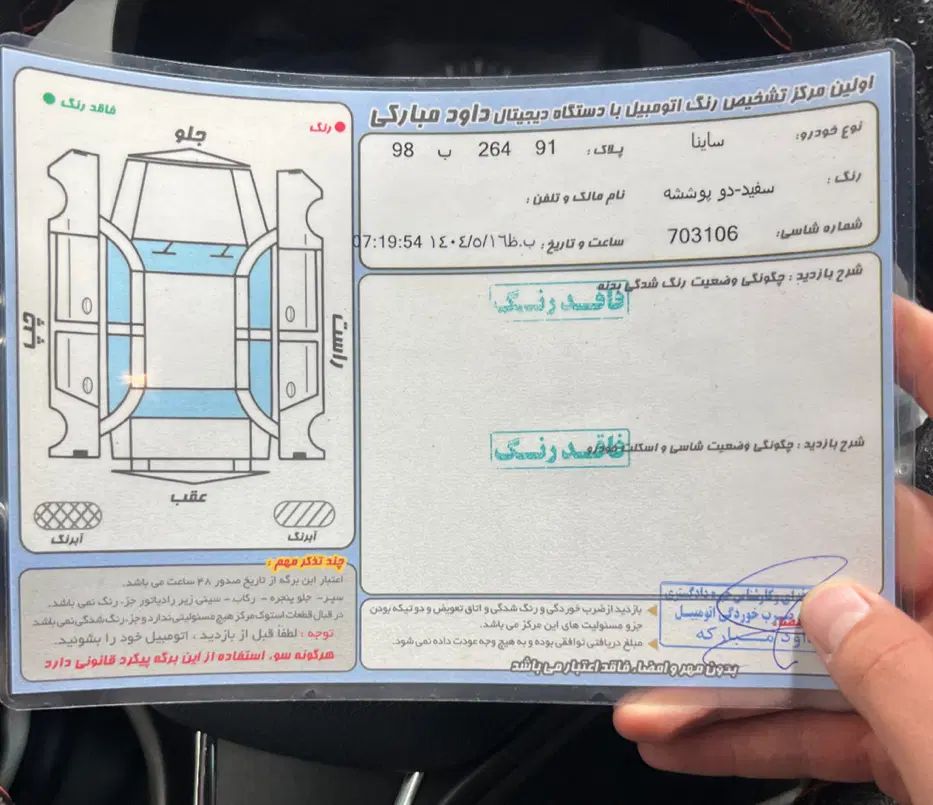 اولین مرکز تشخیص رنگ اتومبیل با دستگاه دیجیتال داود مبارکی
نوع خودرو: ساینا
پلاک: 91 264 ب 98
رنگ: سفید-دو پوششه
نام مالک و تلفن:
شماره شاسی: 703106
ساعت و تاریخ: 07:19:54 ١٤٠٤/٥/١٦ ب.ظ
شرح بازدید: چگونگی وضعیت رنگ شدگی بدنه
فاقد رنگ
شرح بازدید: چگونگی وضعیت شاسی و اسکلت خودرو
فاقد رنگ
بازدید از ضرب خوردگی و رنگ شدگی و اتاق تعویض و دو تیکه بودن
جزو مسئولیت های این مرکز می باشد.
مبلغ دریافتی توافقی بوده و به هیچ وجه عودت داده نمی شود.
بدون مهر و امضاء فاقد اعتبار می باشد
دادگستری
ضرب خوردگی اتومبیل
داود مبارکه
رنگ
فاقد رنگ
جلو
چپ
راست
عقب
آبرنگ
آبرنگ
چند تذکر مهم:
اعتبار این برگه از تاریخ صدور ۴۸ ساعت می باشد.
سپر- جلو پنجره - رکاب - سینی زیر رادیاتور جزء رنگ نمی باشد.
در قبال قطعات استوک مرکز هیچ مسئولیتی ندارد و جزء رنگ شدگی نمی باشد
توجه: لطفا قبل از بازدید، اتومبیل خود را بشوئید.
هرگونه سوء استفاده از این برگه پیگرد قانونی دارد